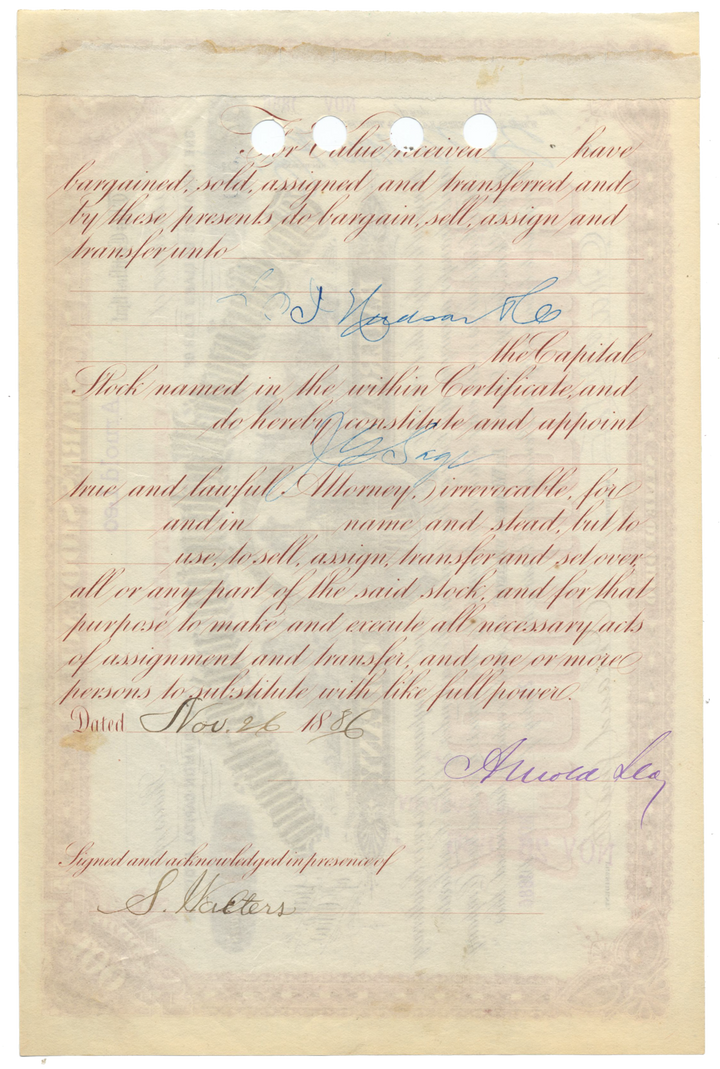 For Value received have
bargained, sold, assigned and transferred and
by these presents do bargain, sell, assign and
transfer unto
Hudson & Co
the Capital
Stock named in the within Certificate, and
do hereby constitute and appoint
J G Sage
true and lawful Attorney, irrevocable, for
and in name and stead, but to
use, to sell, assign, transfer and set over,
all or any part of the said stock, and for that
purpose to make and execute all necessary acts
of assignment and transfer, and one or more
persons to substitute with like full power.
Dated Nov. 26 1886
Arnold Leo
Signed and acknowledged in presence of
S. Walters